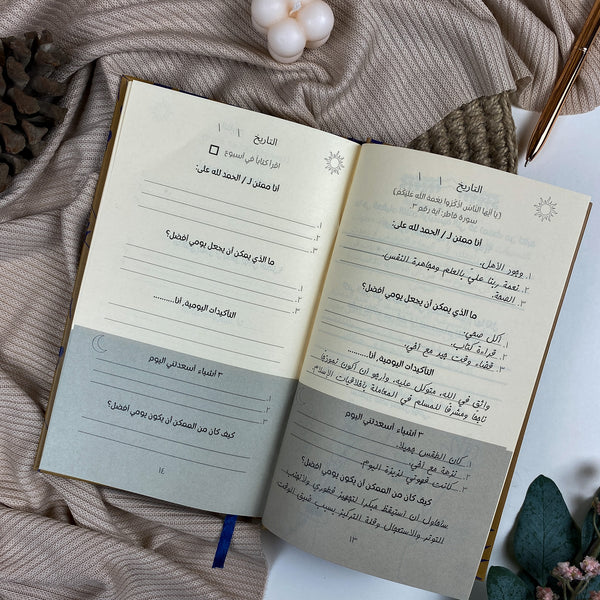 التاريخ \ \
(يا أيها الناس أذكروا نعمة الله عليكم)
سورة فاطر، آية رقم ٣.
أنا ممتن لـ / الحمد لله على:
١. وجود الأهل.
٢. نعمة ربنا عليّ بالعلم ومجاهدة النفس.
٣. الصحة.
ما الذي يمكن أن يجعل يومي أفضل؟
١. أكل صحي.
٢. قراءة كتاب.
٣. قضاء وقت مع أخي.
التأكيدات اليومية، أنا.........
واثق في الله، متوكل عليه، وأرجو أن أكون نموذجًا
ناجحًا ومشرفًا للمسلم في المعاملة بأخلاقيات الإسلام.
٣ أشياء أسعدتني اليوم
١. كان الطقس جميلًا.
٢. نزهة مع أخي.
٣. كانت قهوتي لذيذة اليوم.
كيف كان من الممكن أن يكون يومي أفضل؟
سأحاول أن أستيقظ مبكرا لتجهيز فطوري ولأتجنب
التوتر والاستعجال وقلة التركيز بسبب ضيق الوقت
١٣
التاريخ \ \
اقرأ كتاباً في أسبوع
أنا ممتن لـ / الحمد لله على:
١.
٢.
٣.
ما الذي يمكن أن يجعل يومي أفضل؟
١.
٢.
٣.
التأكيدات اليومية، أنا.........
٣ أشياء أسعدتني اليوم
١.
٢.
٣.
كيف كان من الممكن أن يكون يومي أفضل؟
١٤